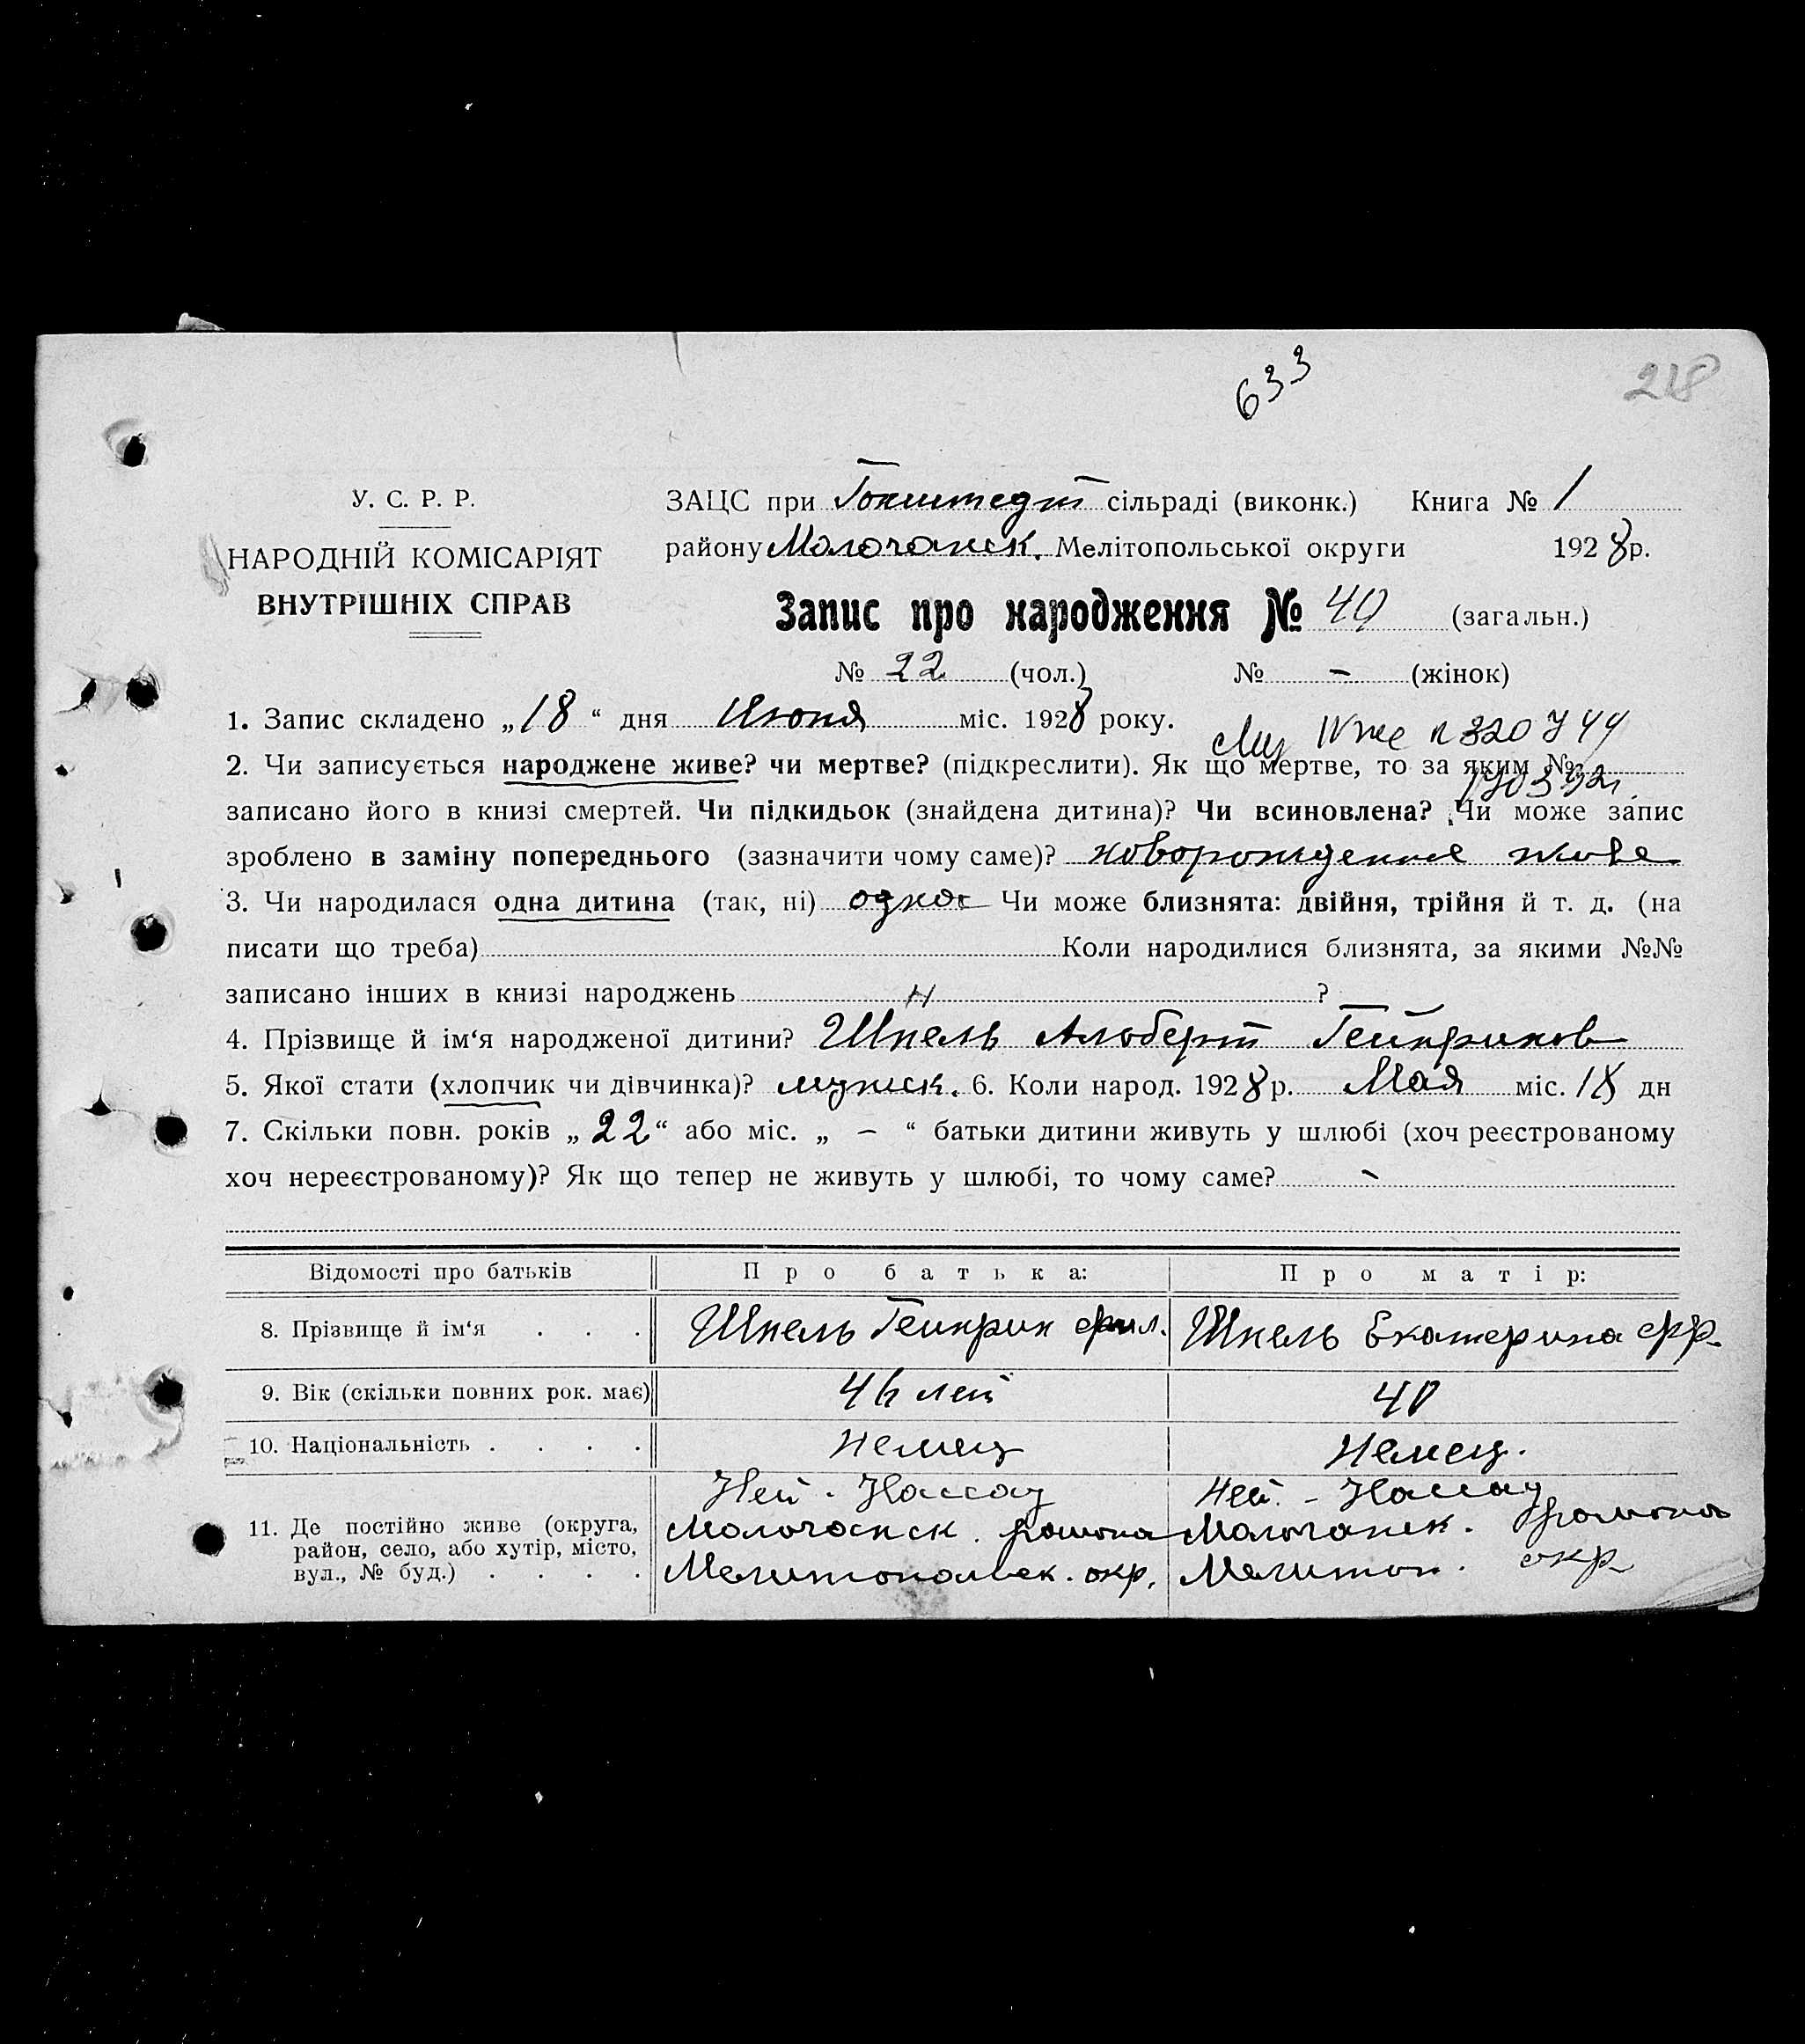 633
218
У. С. Р. Р.
НАРОДНІЙ КОМІСАРІЯТ
ВНУТРІШНІХ СПРАВ
ЗАЦС при Гохштедт сільраді (виконк.) Книга № 1
району Молочанск. Мелітопольської округи 1928 р.
Запис про народження № 40 (загальн.)
№ 22 (чол.) № – (жінок)
1. Запис складено „18“ дня Июня міс. 1928 року.
2. Чи записується народжене живе? чи мертве? (підкреслити). Як що мертве, то за яким №
записано його в книзі смертей. Чи підкидьок (знайдена дитина)? Чи всиновлена? Чи може запис
зроблено в заміну попереднього (зазначити чому саме)? новорожденное живое
3. Чи народилася одна дитина (так, ні) одна Чи може близнята: двійня, трійня й т. д. (на
писати що треба) Коли народилися близнята, за якими №№
записано інших в книзі народжень ?
4. Прізвище й ім‘я народженої дитини? Шпель Альберт Гейнрихов
5. Якої стати (хлопчик чи дівчинка)? мужск. 6. Коли народ. 1928 р. Мая міс. 18 дн
7. Скільки повн. років „22“ або міс. „ – “ батьки дитини живуть у шлюбі (хоч реєстрованому
хоч нереєстрованому)? Як що тепер не живуть у шлюбі, то чому саме? –
Відомості про батьків Про батька: Про матір:
8. Прізвище й ім‘я . . . Шпель Гейнрих фил. Шпель Екатерина фр.
9. Вік (скільки повних рок. має) 46 лет 40
10. Національність . . . . Немец Немец.
11. Де постійно живе (округа, район, село, або хутір, місто, вул., № буд.) . . . .
Ней - Нассау
Молочанск. района
Мелитопольск. окр.
Ней. - Нассау
Молочанск. района
Мелитоп. окр.